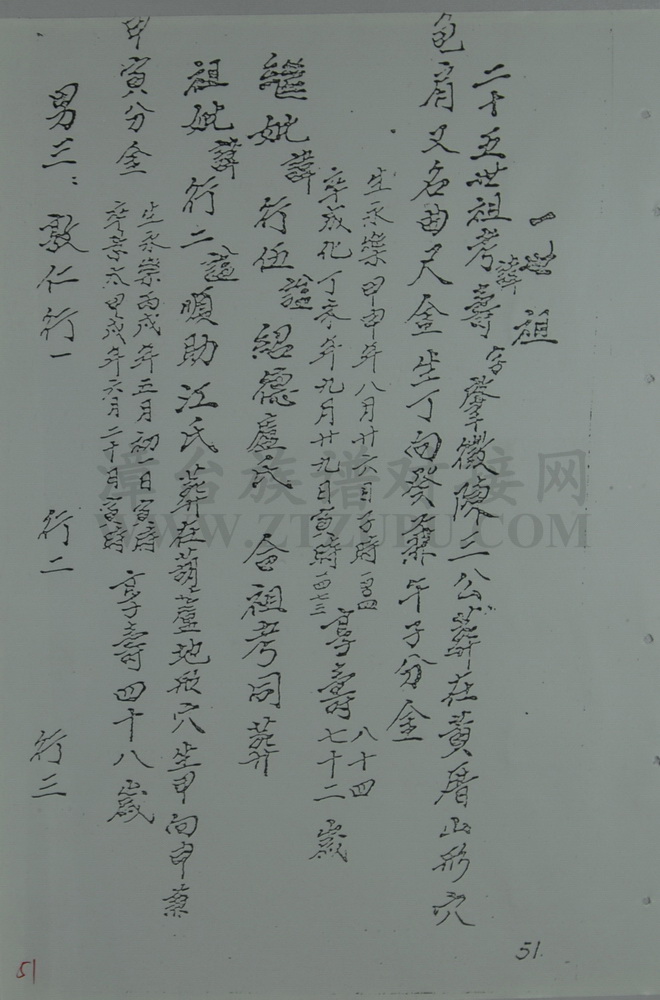 一世祖
二十五世祖考諱壽字肇徽陳三公葬在黃厝山形穴
龟肩又名曲尺金坐丁向癸兼午子分金
生永樂甲申年八月廿六日子時 一四〇四
卒成化丁亥年九月廿九日寅時 一四七三
享壽八十四七十二歲
繼妣諱行伍諡紹德盧氏 合祖考同葬
祖妣諱行二諡順助江氏葬在葫蘆地形穴坐甲向申兼
甲寅分金
生永樂丙戌年五月初一日寅時
卒景泰甲戌年六月二十日寅時
享壽四十八歲
男三：敦仁行一 行二 行三
51
51
漳台族谱对接网
WWW.ZTZUPU.COM